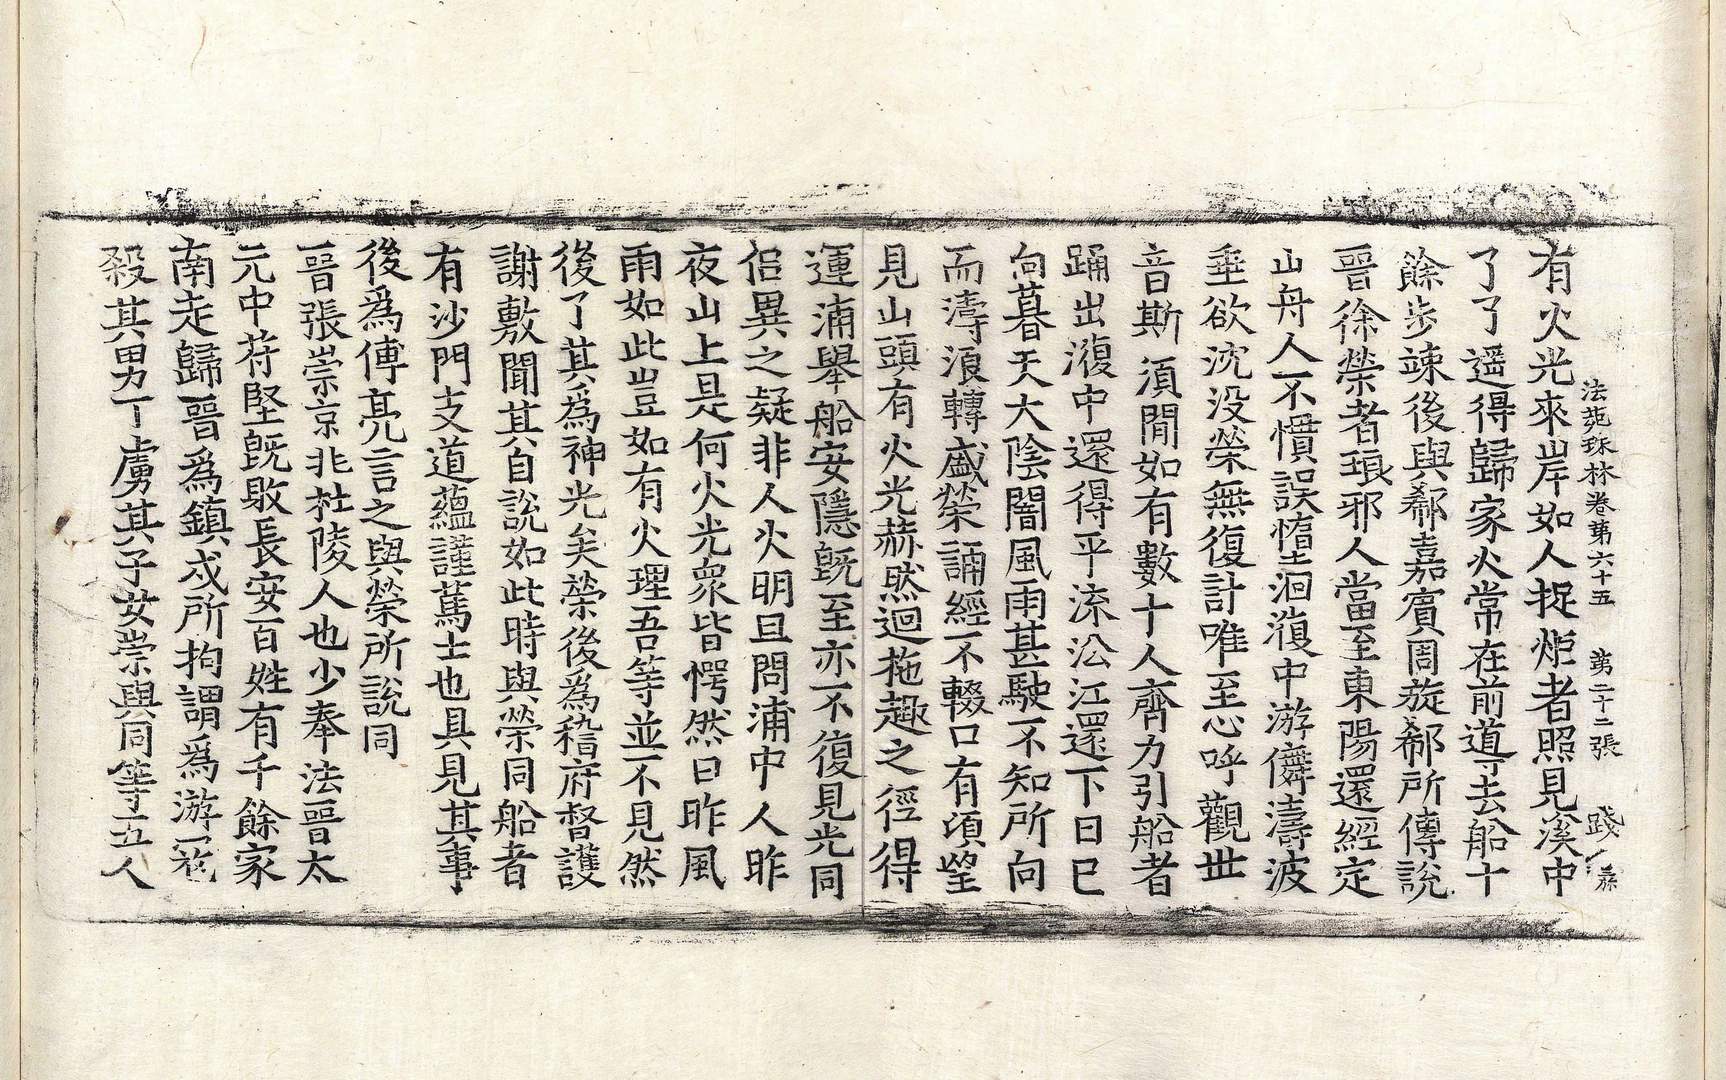 法苑珠林卷第六十五 第二十二張 踐
有火光來岸如人捉炬者照見溪中
了了遥得歸家火常在前道寸去船十
餘步竦後與郗嘉賓周旋郗所傳說
晉徐榮者瑯邪人當至東陽還經定
山舟人不慣誤墮洄澓中游儛濤波
垂欲沈没榮無復計唯至心呼觀世
音斯須間如有數十人齊力引船者
踊出澓中還得平流㳂江還下日已
向暮天大陰闇風雨甚駛不知所向
而濤浪轉盛榮誦經不輟口有頃望
見山頭有火光赫然迴拖趣之徑得
還浦舉船安隱既至亦不復見光同
侣異之疑非人火明旦問浦中人昨
夜山上是何火光衆皆愕然曰昨風
雨如此豈如有火理吾等並不見然
後了其爲神光矣榮後爲稽府督護
謝敷聞其自說如此時與榮同船者
有沙門支道蘊謹篤士也具見其事
後爲傅亮言之與榮所說同
晉張崇京兆杜陵人也少奉法晉太
元中苻堅既敗長安百姓有千餘家
南走歸晉爲鎮戍所拘謂爲游冦
殺其男丁虜其子女崇與同等五人